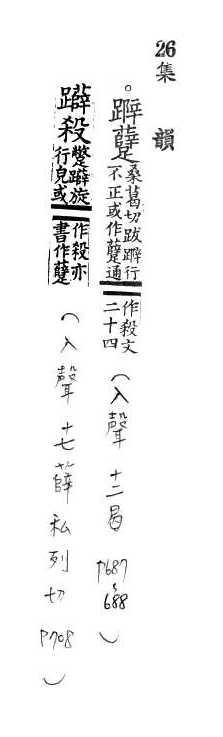 26集 韻
。躠桑葛切跋行不正或作躠通作殺文二十四(入聲 十二曷 P687~688)
殺蹩旋行皃或作殺亦書作躠(入聲 十七薛 私列切 P708)